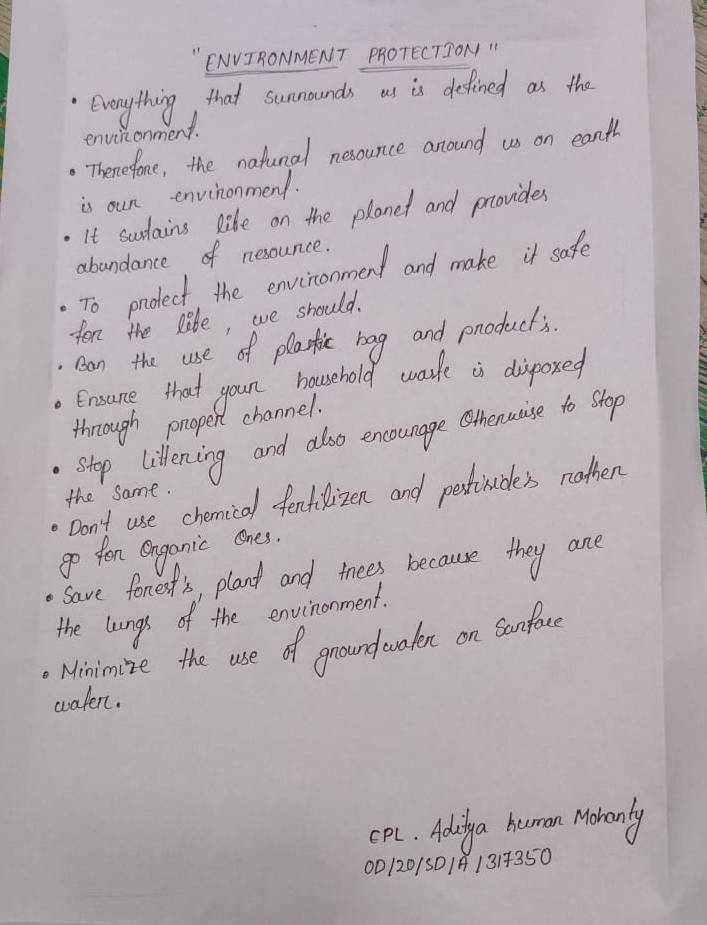 "ENVIRONMENT PROTECTION"
• Everything that surrounds us is defined as the
environment.
• Therefore, the natural resource around us on earth
is our environment.
• It sustains life on the planet and provides
abundance of resource.
• To protect the environment and make it safe
for the life, we should.
• Ban the use of plastic bag and product's.
• Ensure that your household waste is disposed
through proper channel.
• Stop littering and also encourage Otherwise to Stop
the same.
• Don't use chemical fertilizer and pesticide's rather
go for Organic Ones.
• Save forest's, plant and trees because they are
the lungs of the environment.
• Minimize the use of groundwater or Surface
water.
CPL. Aditya kumar Mohanty
OD/20/SD/A/317350